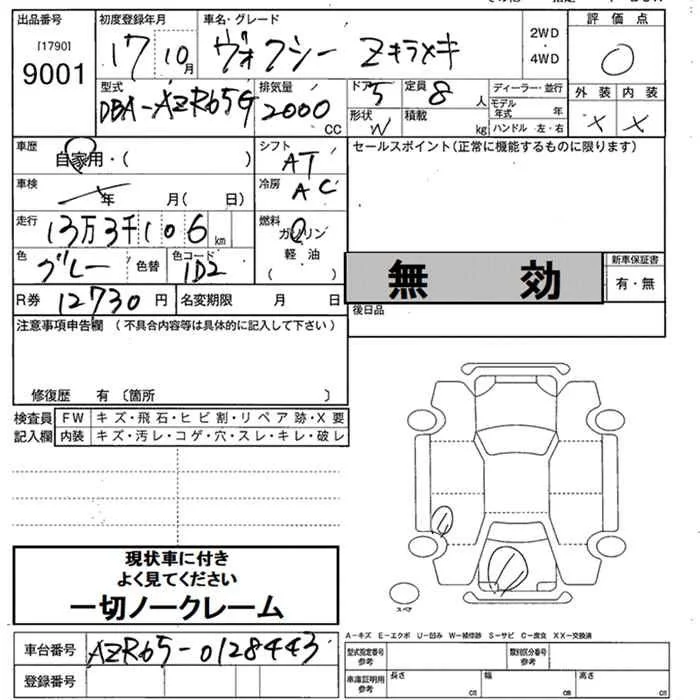 出品番号 初度登録年月 車名・グレード 評価点
[1790]
9001
17 10月 ヴォクシー Zキラメキ 2WD・4WD
型式 排気量 ドア 定員 ディーラー・並行 外装 内装
DBA-AZR65G 2000 CC 5 8 人 モデル年式 年
形状 W 積載 kg ハンドル 左・右 × ×
車歴 自家用・( ) シフト AT セールスポイント(正常に機能するものに限ります)
車検 年 月( 日) 冷房 AC
走行 13万3千106 km 燃料 ガソリン
色 グレー 色替 色コード 1D2 軽油
( )
無 効 新車保証書
有・無
R券 12730円 名変期限 月 日 後日品
注意事項申告欄 (不具合内容等は具体的に記入して下さい)
修復歴 有 〔箇所 〕
検査員 FW キズ・飛石・ヒビ割・リペア跡・X要
記入欄 内装 キズ・汚レ・コゲ・穴・スレ・キレ・破レ
現状車に付き
よく見てください
一切ノークレーム
スペア
車台番号 AZR65-0128443
登録番号
A-キズ E-エクボ U-凹み W-補修跡 S-サビ C-腐食 XX-交換済
型式指定番号 参考 類別区分番号 参考
車庫証明用 参考 長さ cm 幅 cm 高さ cm